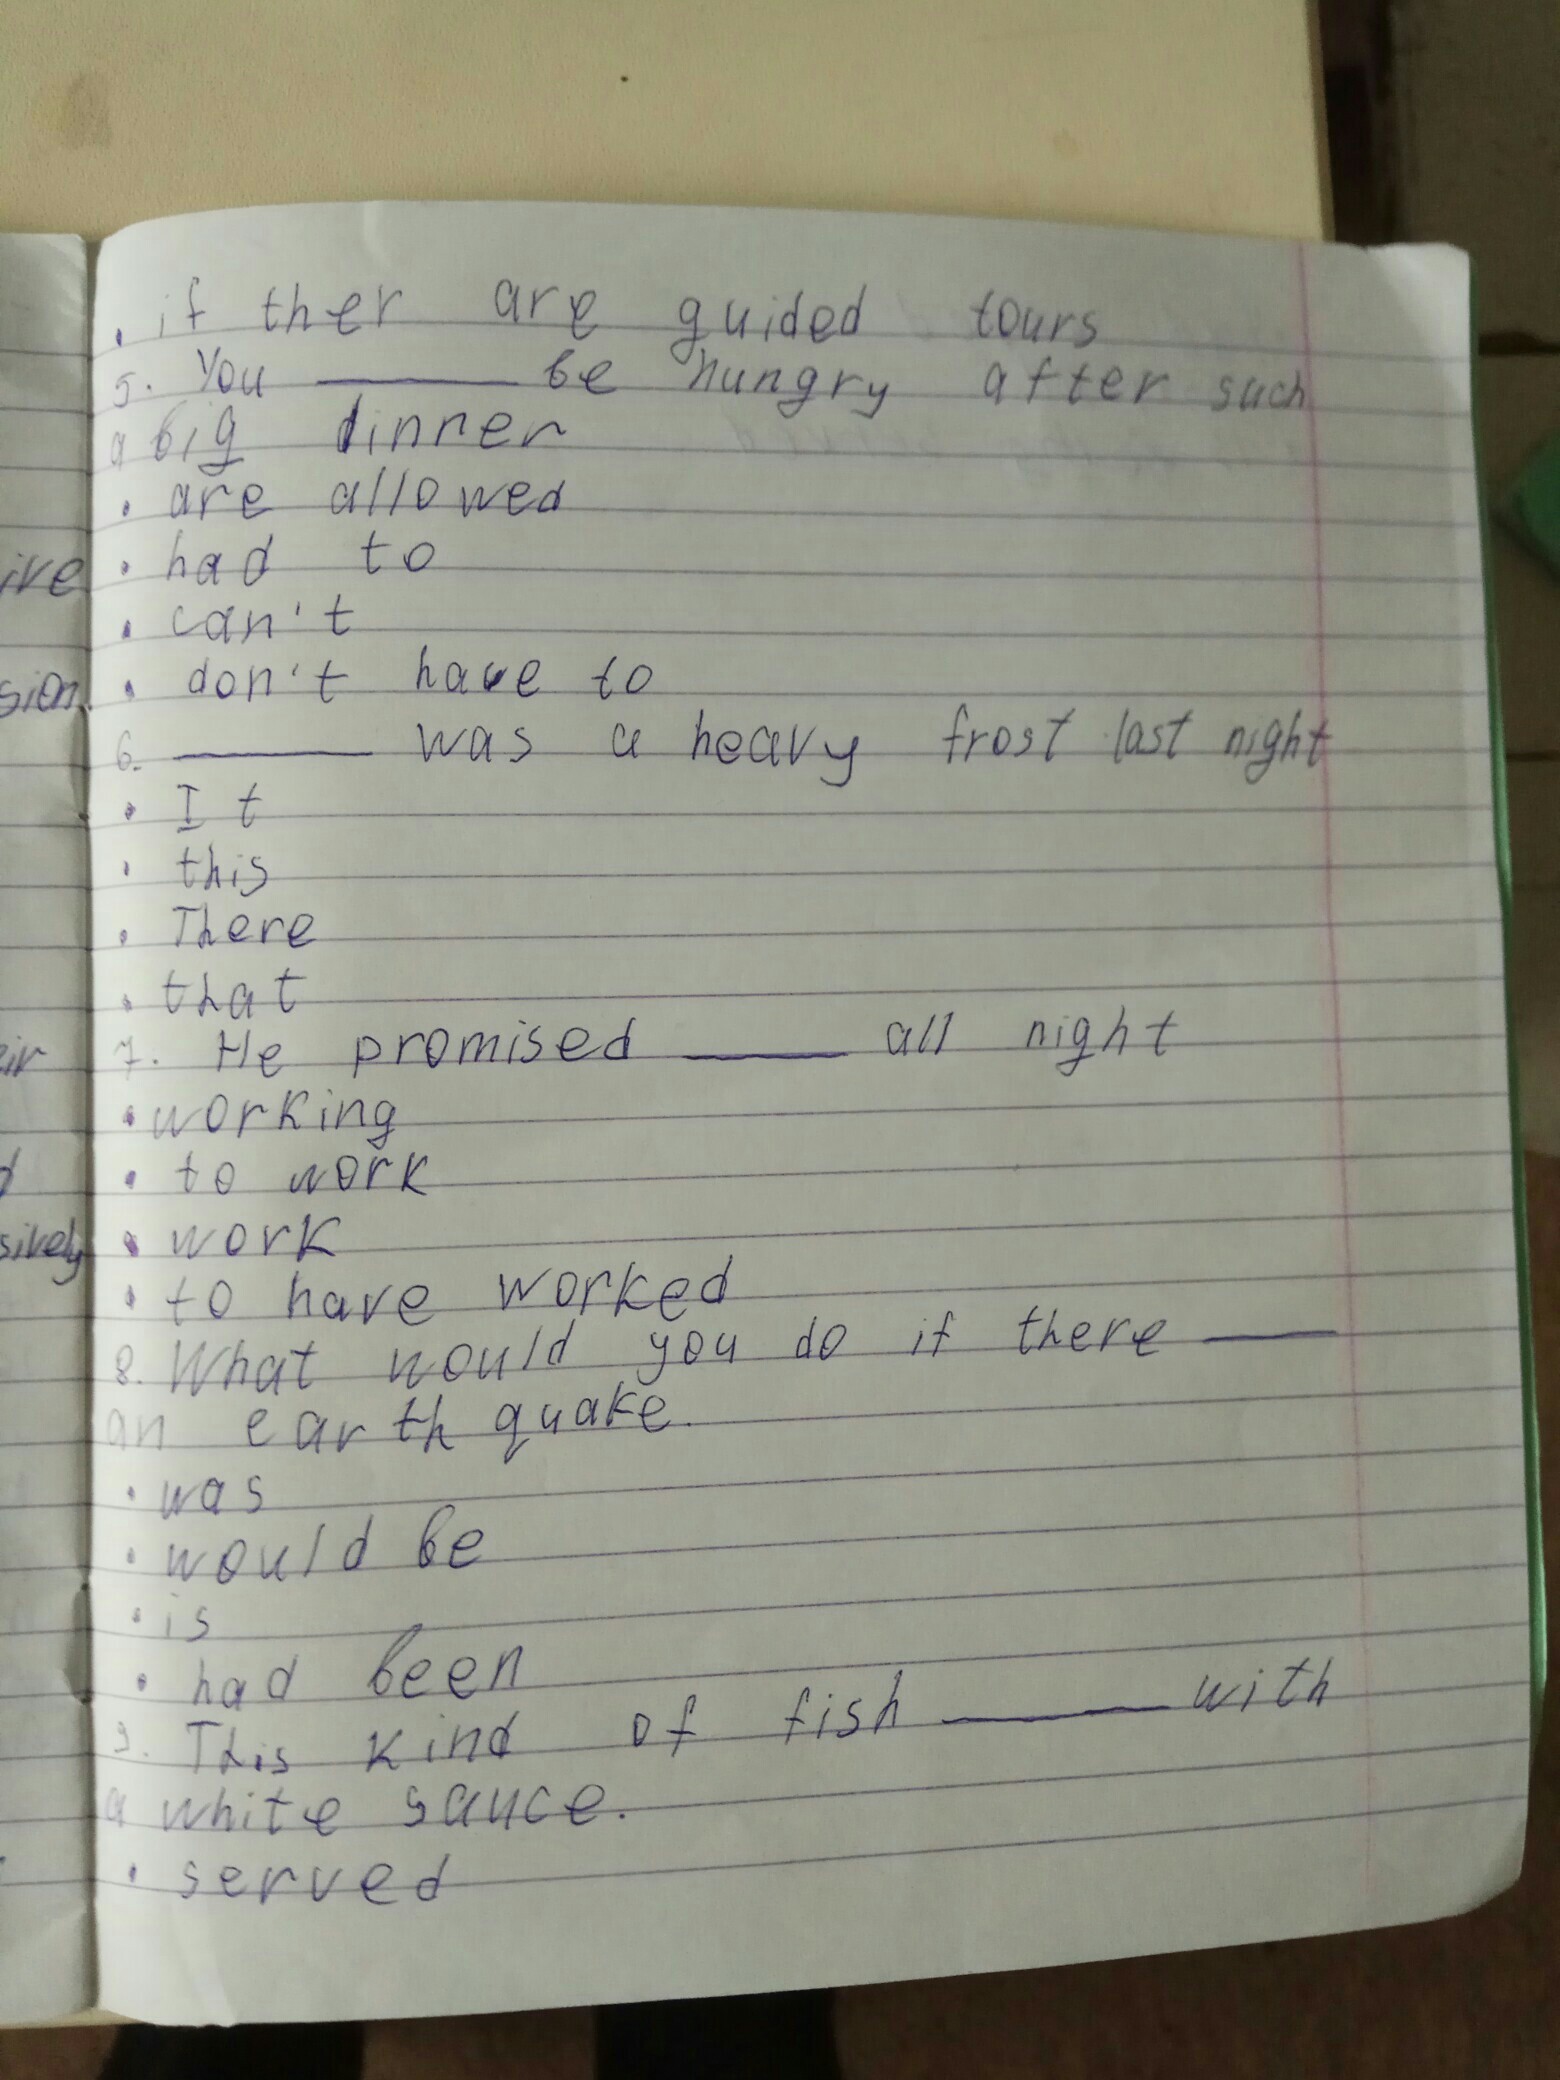 . if ther are guided tours
5. You ______ be hungry after such
a big dinner
. are allowed
. had to
. can't
. don't have to
6. ______ was a heavy frost last night
. It
. this
. There
. that
7. He promised ______ all night
. working
. to work
. work
. to have worked
8. What would you do if there ______
an earth quake.
. was
. would be
. is
. had been
9. This kind of fish ______ with
a white sauce.
. served
ire
sion.
eir
d
sively